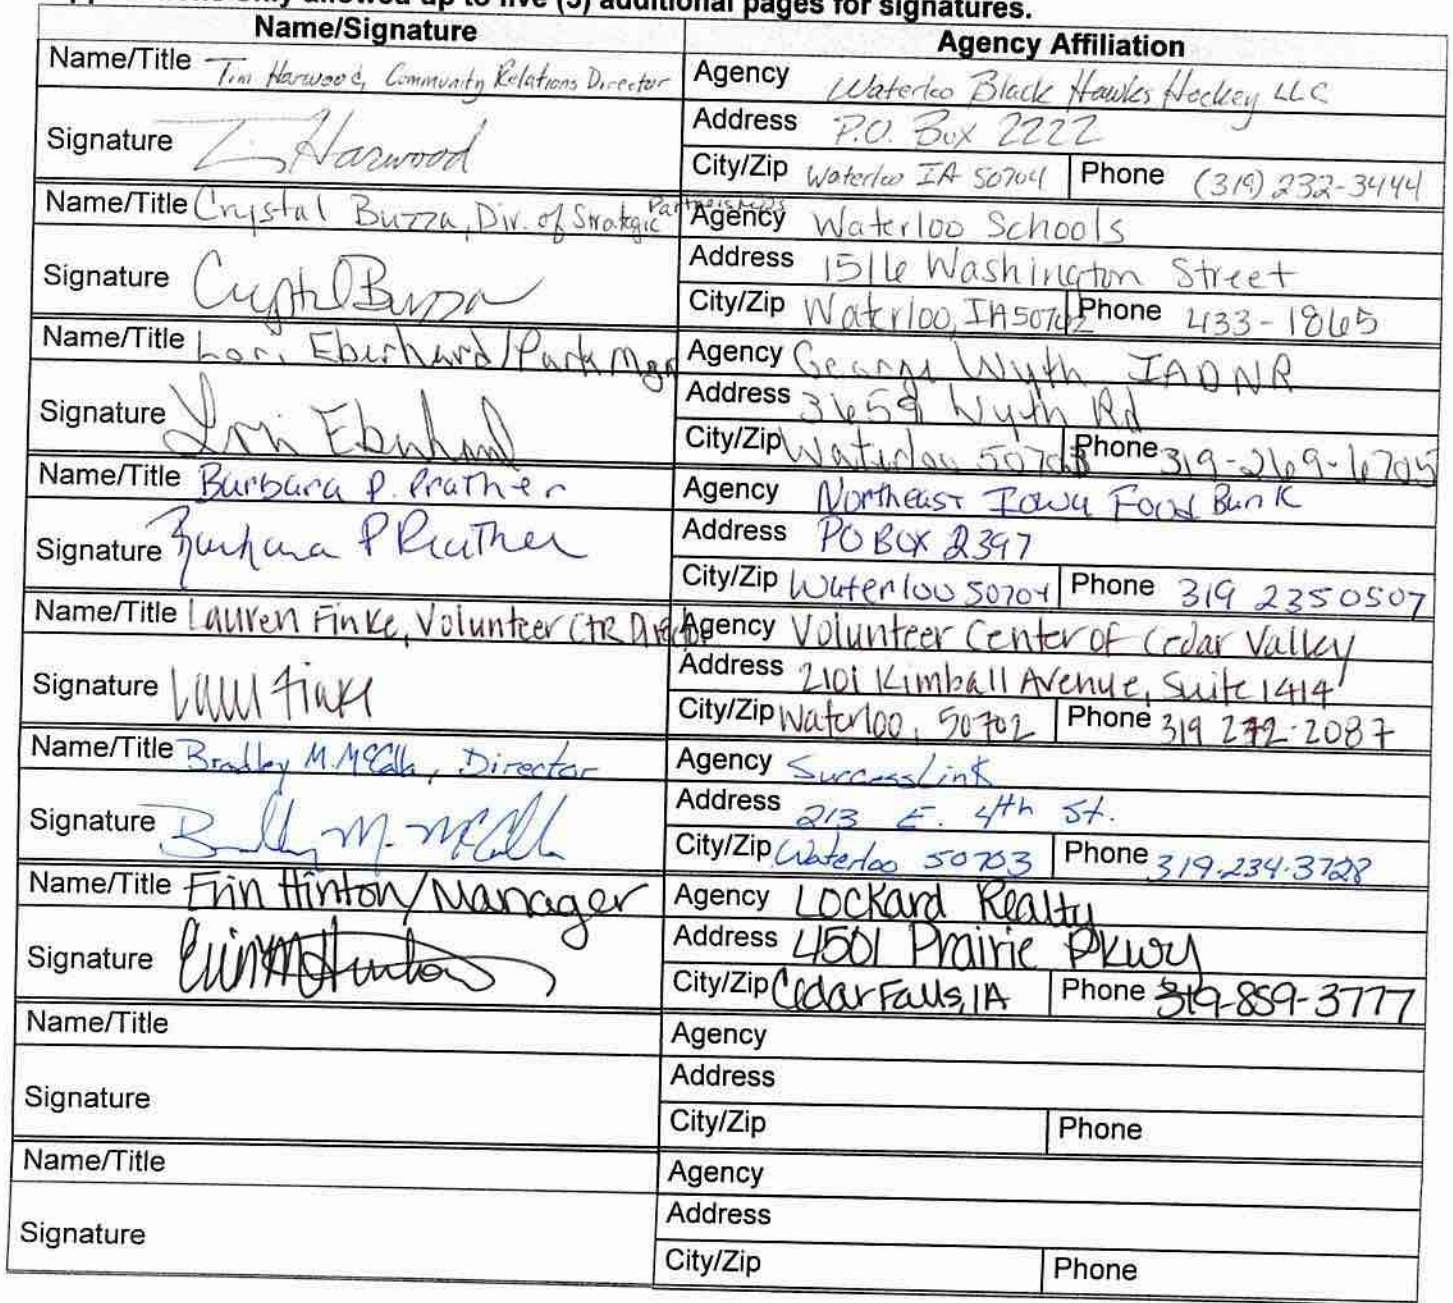 only allowed up to five (5) additional pages for signatures.
Name/Signature Agency Affiliation
Name/Title Tim Harwood, Community Relations Director
Agency Waterloo Black Hawks Hockey LLC
Signature T Harwood
Address P.O. Box 2222
City/Zip Waterloo IA 50704 Phone (319) 232-3444
Name/Title Crystal Buzza, Dir. of Strategic Partnerships
Agency Waterloo Schools
Signature Crystal Buzza
Address 1516 Washington Street
City/Zip Waterloo, IA 50702 Phone 433-1865
Name/Title Lori Eberhard/Park Mgr
Agency George Wyth IADNR
Signature Lori Eberhard
Address 3659 Wyth Rd
City/Zip Waterloo 50703 Phone 319-269-6705
Name/Title Barbara P. Prather
Agency Northeast Iowa Food Bank
Signature Barbara P Prather
Address PO BOX 2397
City/Zip Waterloo 50704 Phone 319 2350507
Name/Title Lauren Finke, Volunteer Ctr Director
Agency Volunteer Center of Cedar Valley
Signature Lauren Finke
Address 2101 Kimball Avenue, Suite 1414
City/Zip Waterloo, 50702 Phone 319 272-2087
Name/Title Bradley M. McCalla, Director
Agency SuccessLink
Signature Bradley M. McCalla
Address 213 E. 4th St.
City/Zip Waterloo 50703 Phone 319.234.3728
Name/Title Erin Hinton/Manager
Agency Lockard Realty
Signature Erin M Hinton
Address 4501 Prairie Pkwy
City/Zip Cedar Falls, IA Phone 319-859-3777
Name/Title
Agency
Signature
Address
City/Zip Phone
Name/Title
Agency
Signature
Address
City/Zip Phone